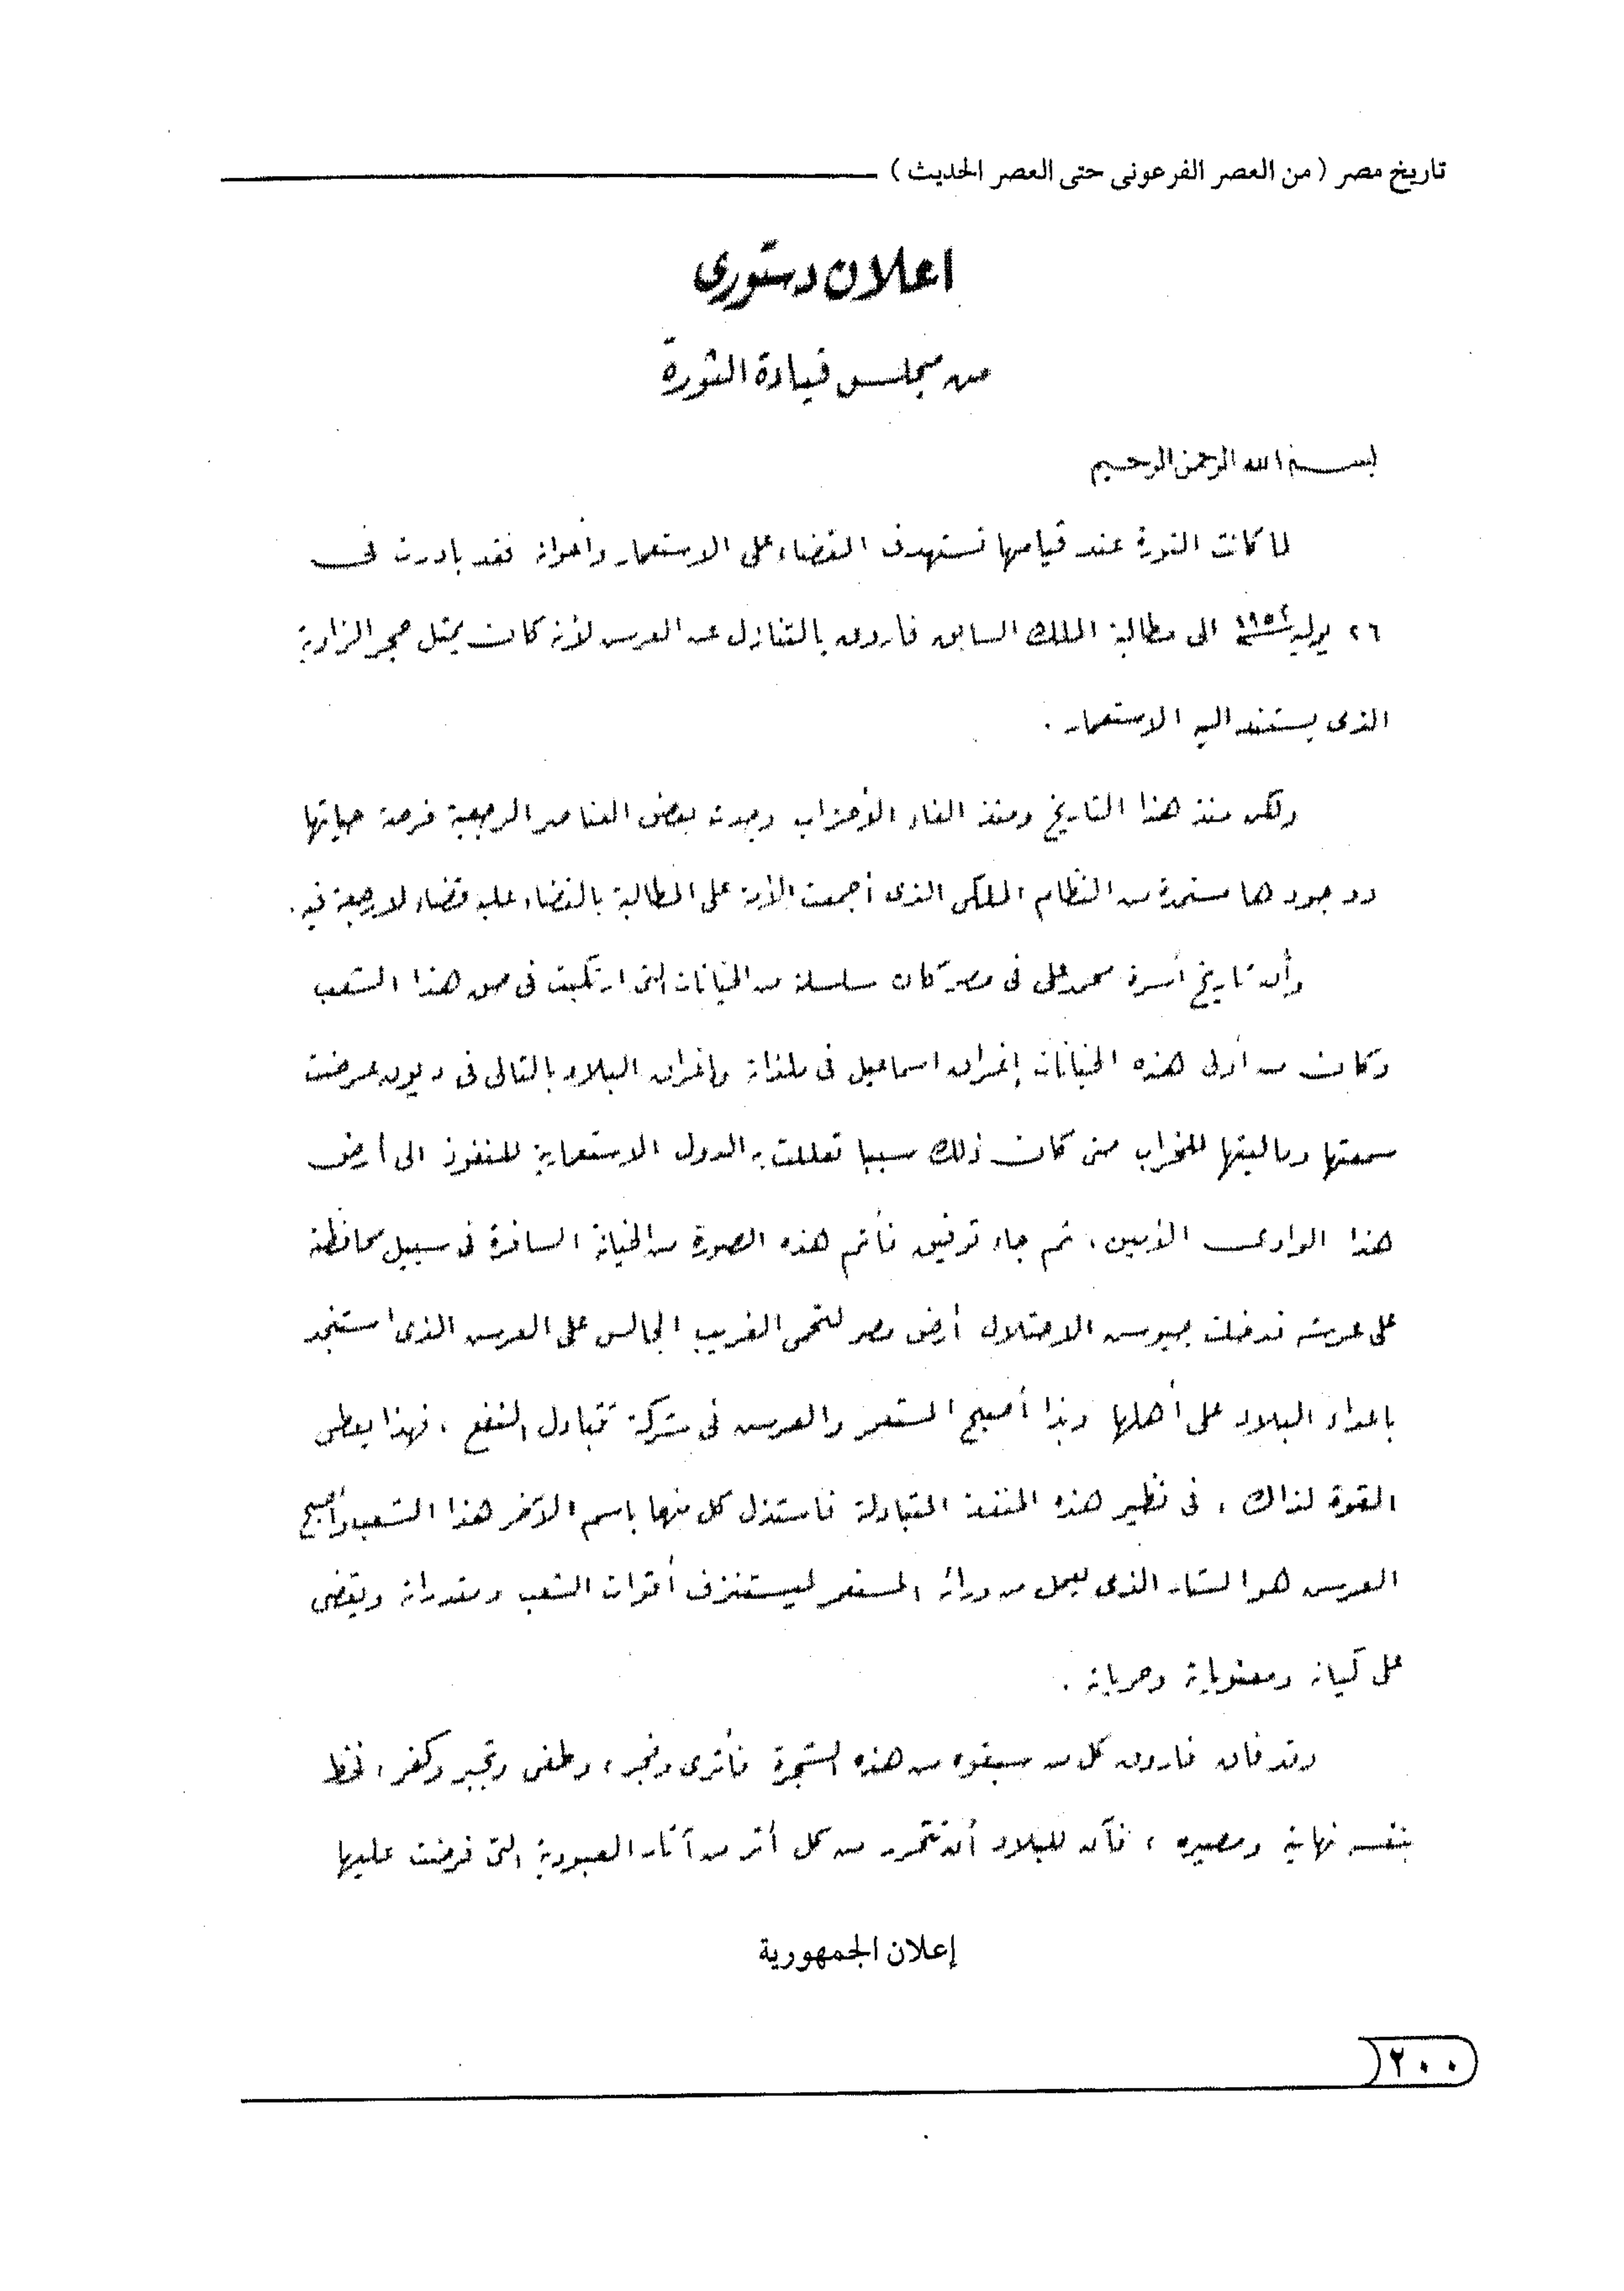 تاريخ مصر ( من العصر الفرعونى حتى العصر الحديث )
اعلان دستورى
من مجلس قيادة الثورة
بسم الله الرحمن الرحيم
لما كانت الثورة عند قيامها تستهدف القضاء على الاستعمار وأعوانه فقد بادرت فى
٢٦ يوليه سنة ١٩٥٢ الى مطالبة الملك السابق فاروق بالتنازل عن العرش لأنه كان يمثل حجر الزاوية
الذى يستند اليه الاستعمار .
ولكن منذ هذا التاريخ ومنذ الغاء الأحزاب وجدت بعض العناصر الرجعية فرصة حياتها
ووجودها مستمدة من النظام الملكى الذى أجمعت الأمة على المطالبة بالقضاء عليه قضاء لا رجعة فيه .
وأن تاريخ أسرة محمد على فى مصر كان سلسلة من الخيانات التى ارتكبت فى حق هذا الشعب
وكان من أولى هذه الخيانات إغراق اسماعيل فى ملذاته وإغراق البلاد بالتالى فى ديون عرضت
سمعتها وماليتها للخراب حتى كان ذلك سببا تعللت به الدول الاستعمارية للنفوذ الى أرض
هذا الوادى الأمين ، ثم جاء توفيق فأتم هذه الصورة من الخيانة السافرة فى سبيل محافظته
على عرشه فدخلت جيوش الاحتلال أرض مصر لتحمى الغريب الجالس على العرش الذى استنجد
بأعداء البلاد على أهلها وبذا أصبح المستعمر والعرش فى شركة تتبادل النفع ، فهذا يعطى
القوة لذاك ، فى نظير هذه المنفعة المتبادلة فاستذل كل منهما باسم الآخر هذا الشعب وأصبح
العرش هو الستار الذى يعمل من ورائه المستعمر ليستنزف أقوات الشعب ومقدراته ويقضى
على كيانه ومعنوياته وحرياته .
وقد فاق فاروق كل من سبقوه من هذه الشجرة فأثرى وفجر ، وطغى وتجبر وكفر ، فخط
بنفسه نهايته ومصيره ، فآن للبلاد أن تتحرر من كل أثر من آثار العبودية التى فرضت عليها
إعلان الجمهورية
٢٠٠